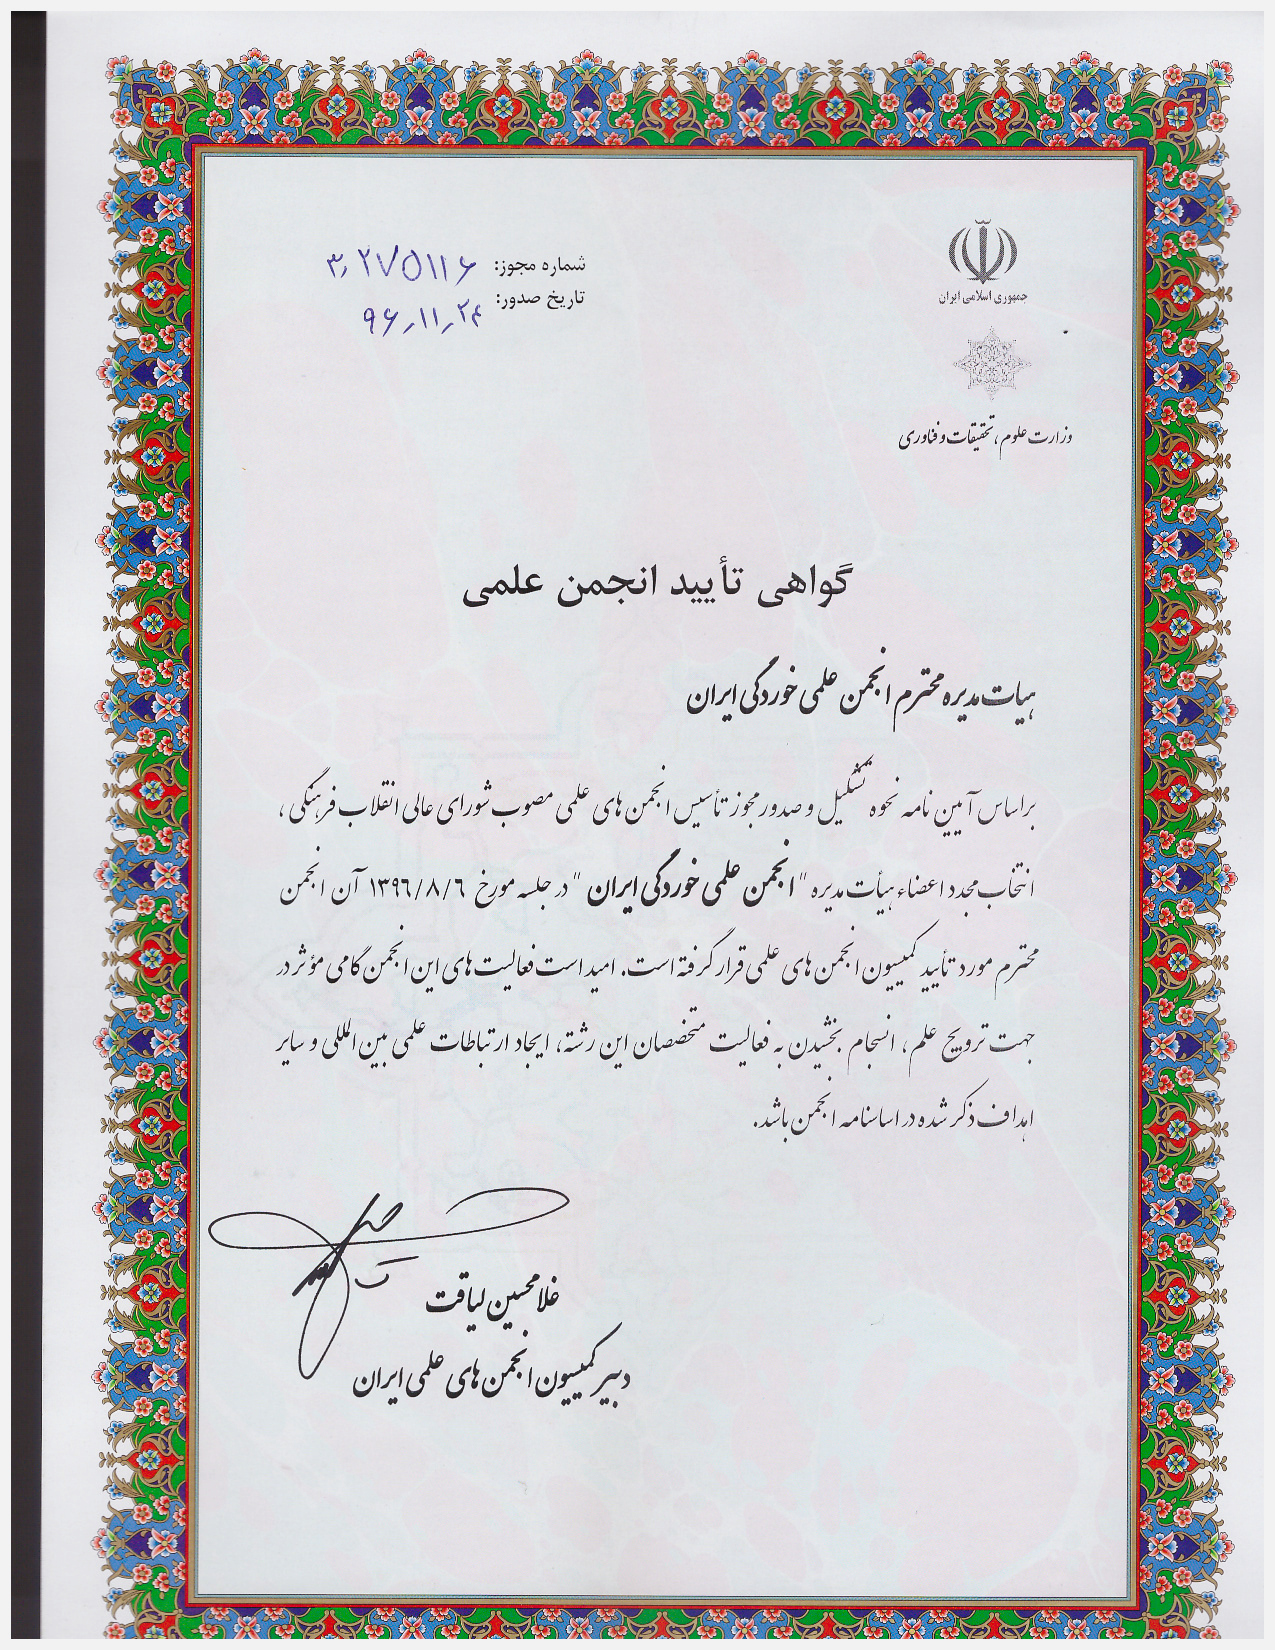 جمهوری اسلامی ایران
وزارت علوم، تحقیقات و فناوری
شماره مجوز: ۳٫۲۷۵۱۱۶
تاریخ صدور: ۹۶٫۱۱٫۲۴
گواهی تأیید انجمن علمی
هیات مدیره محترم انجمن علمی خوردگی ایران
براساس آیین نامه نحوه تشکیل و صدور مجوز تأسیس انجمن های علمی مصوب شورای عالی انقلاب فرهنگی ،
انتخاب مجدد اعضاء هیأت مدیره "انجمن علمی خوردگی ایران " در جلسه مورخ ۱۳۹۶/۸/۶ آن انجمن
محترم مورد تأیید کمیسیون انجمن های علمی قرار گرفته است. امید است فعالیت های این انجمن گامی مؤثر در
جهت ترویج علم ، انسجام بخشیدن به فعالیت متخصصان این رشته، ایجاد ارتباطات علمی بین المللی و سایر
اهداف ذکر شده در اساسنامه انجمن باشد.
غلامحسین لیاقت
دبیر کمیسیون انجمن های علمی ایران